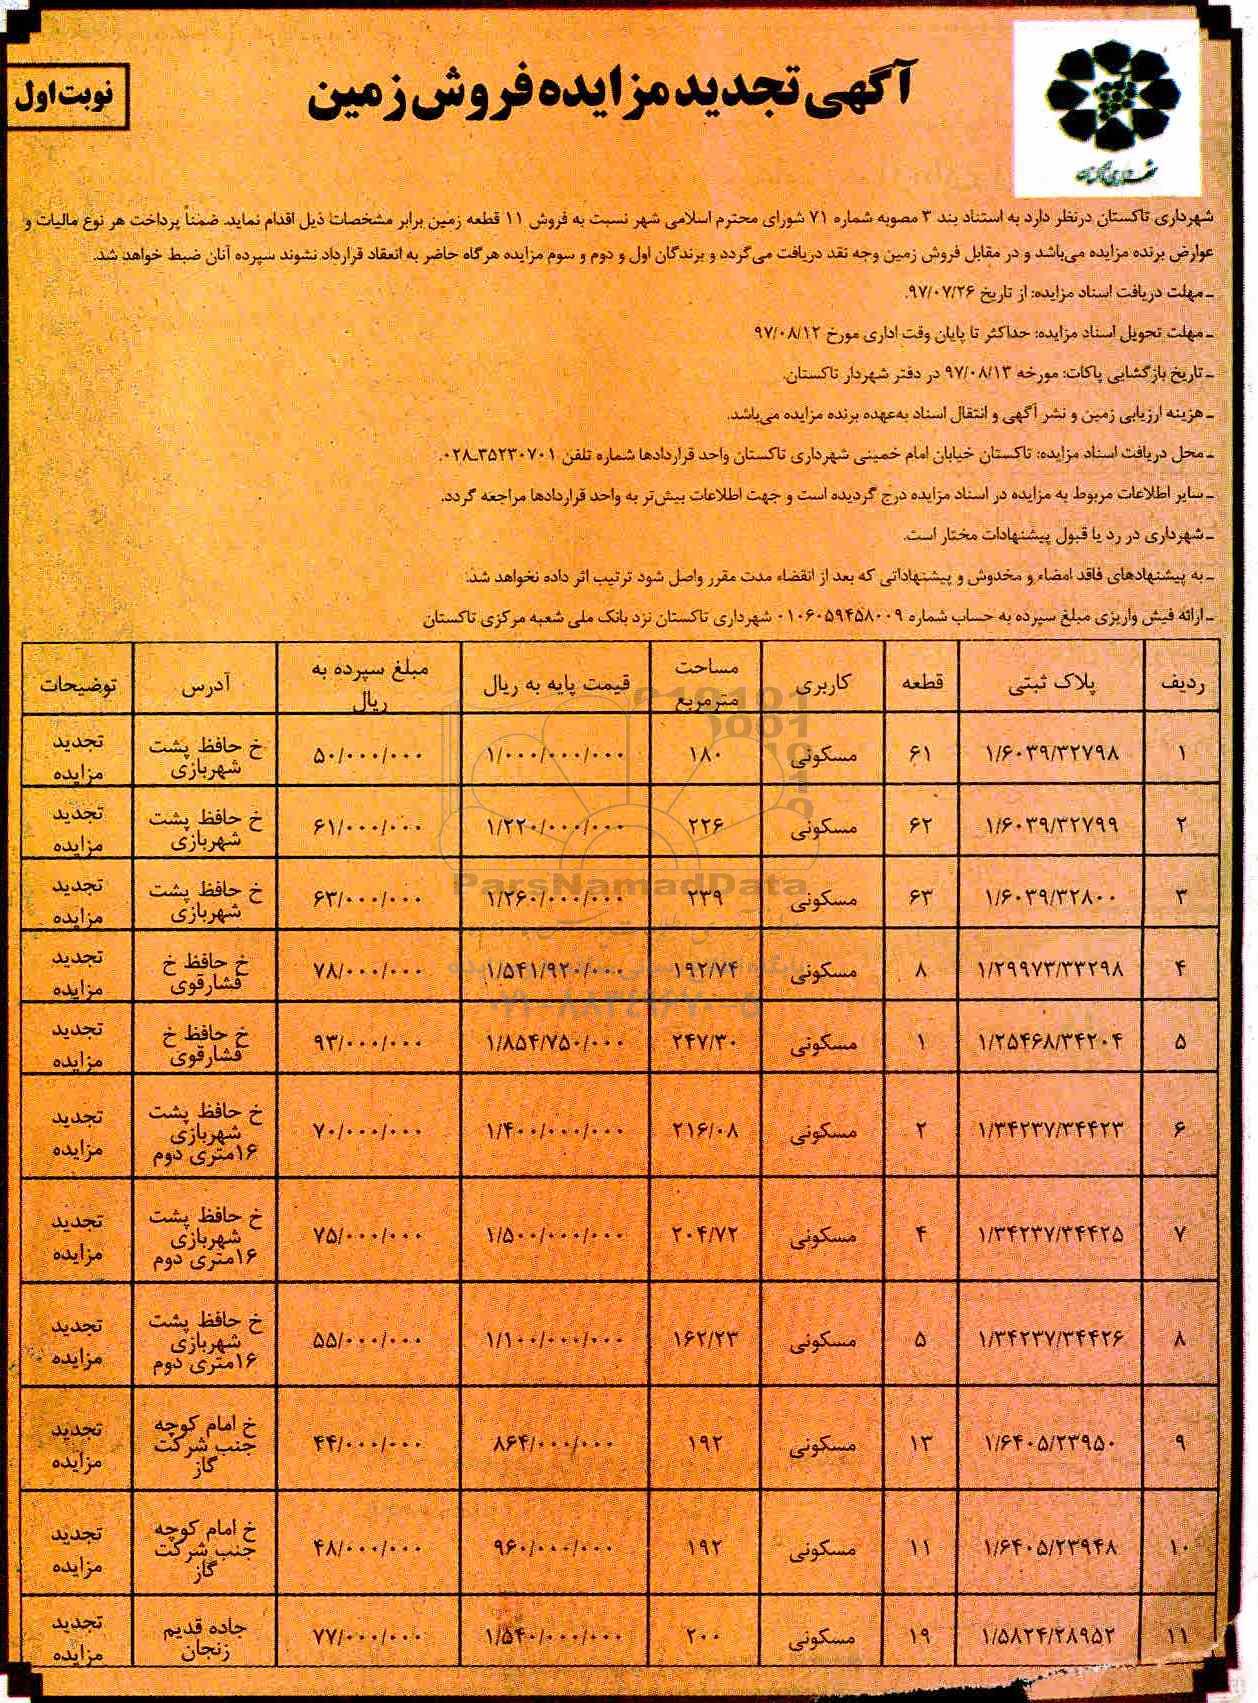 آگهی تجدید مزایده فروش زمین
نوبت اول
شهرداری تاکستان
شهرداری تاکستان درنظر دارد به استناد بند ۳ مصوبه شماره ۷۱ شورای محترم اسلامی شهر نسبت به فروش ۱۱ قطعه زمین برابر مشخصات ذیل اقدام نماید. ضمناً پرداخت هر نوع مالیات و
عوارض برنده مزایده می‌باشد و در مقابل فروش زمین وجه نقد دریافت می‌گردد و برندگان اول و دوم و سوم مزایده هرگاه حاضر به انعقاد قرارداد نشوند سپرده آنان ضبط خواهد شد.
ـ مهلت دریافت اسناد مزایده: از تاریخ ۹۷/۰۷/۲۶.
ـ مهلت تحویل اسناد مزایده: حداکثر تا پایان وقت اداری مورخ ۹۷/۰۸/۱۲
ـ تاریخ بازگشایی پاکات: مورخه ۹۷/۰۸/۱۳ در دفتر شهردار تاکستان.
ـ هزینه ارزیابی زمین و نشر آگهی و انتقال اسناد به‌عهده برنده مزایده می‌باشد.
ـ محل دریافت اسناد مزایده: تاکستان خیابان امام خمینی شهرداری تاکستان واحد قراردادها شماره تلفن ۳۵۲۳۰۷۰۱ـ۰۲۸.
ـ سایر اطلاعات مربوط به مزایده در اسناد مزایده درج گردیده است و جهت اطلاعات بیش‌تر به واحد قراردادها مراجعه گردد.
ـ شهرداری در رد یا قبول پیشنهادات مختار است.
ـ به پیشنهادهای فاقد امضاء و مخدوش و پیشنهاداتی که بعد از انقضاء مدت مقرر واصل شود ترتیب اثر داده نخواهد شد.
ـ ارائه فیش واریزی مبلغ سپرده به حساب شماره ۰۱۰۶۰۵۹۴۵۸۰۰۹ شهرداری تاکستان نزد بانک ملی شعبه مرکزی تاکستان
ردیف پلاک ثبتی قطعه کاربری مساحت مترمربع قیمت پایه به ریال مبلغ سپرده به ریال آدرس توضیحات
۱ ۱/۶۰۳۹/۳۲۷۹۸ ۶۱ مسکونی ۱۸۰ ۱/۰۰۰/۰۰۰/۰۰۰ ۵۰/۰۰۰/۰۰۰ خ حافظ پشت شهربازی تجدید مزایده
۲ ۱/۶۰۳۹/۳۲۷۹۹ ۶۲ مسکونی ۲۲۶ ۱/۲۲۰/۰۰۰/۰۰۰ ۶۱/۰۰۰/۰۰۰ خ حافظ پشت شهربازی تجدید مزایده
۳ ۱/۶۰۳۹/۳۲۸۰۰ ۶۳ مسکونی ۲۳۹ ۱/۲۶۰/۰۰۰/۰۰۰ ۶۳/۰۰۰/۰۰۰ خ حافظ پشت شهربازی تجدید مزایده
۴ ۱/۲۹۹۷۳/۳۳۲۹۸ ۸ مسکونی ۱۹۲/۷۴ ۱/۵۴۱/۹۲۰/۰۰۰ ۷۸/۰۰۰/۰۰۰ خ حافظ خ فشارقوی تجدید مزایده
۵ ۱/۲۵۴۶۸/۳۴۲۰۴ ۱ مسکونی ۲۴۷/۳۰ ۱/۸۵۴/۷۵۰/۰۰۰ ۹۳/۰۰۰/۰۰۰ خ حافظ خ فشارقوی تجدید مزایده
۶ ۱/۳۴۲۳۷/۳۴۴۲۳ ۲ مسکونی ۲۱۶/۰۸ ۱/۴۰۰/۰۰۰/۰۰۰ ۷۰/۰۰۰/۰۰۰ خ حافظ پشت شهربازی ۱۶متری دوم تجدید مزایده
۷ ۱/۳۴۲۳۷/۳۴۴۲۵ ۴ مسکونی ۲۰۴/۷۲ ۱/۵۰۰/۰۰۰/۰۰۰ ۷۵/۰۰۰/۰۰۰ خ حافظ پشت شهربازی ۱۶متری دوم تجدید مزایده
۸ ۱/۳۴۲۳۷/۳۴۴۲۶ ۵ مسکونی ۱۶۲/۲۳ ۱/۱۰۰/۰۰۰/۰۰۰ ۵۵/۰۰۰/۰۰۰ خ حافظ پشت شهربازی ۱۶متری دوم تجدید مزایده
۹ ۱/۶۴۰۵/۲۳۹۵۰ ۱۳ مسکونی ۱۹۲ ۸۶۴/۰۰۰/۰۰۰ ۴۴/۰۰۰/۰۰۰ خ امام کوچه جنب شرکت گاز تجدید مزایده
۱۰ ۱/۶۴۰۵/۲۳۹۴۸ ۱۱ مسکونی ۱۹۲ ۹۶۰/۰۰۰/۰۰۰ ۴۸/۰۰۰/۰۰۰ خ امام کوچه جنب شرکت گاز تجدید مزایده
۱۱ ۱/۵۸۲۴/۲۸۹۵۲ ۱۹ مسکونی ۲۰۰ ۱/۵۴۰/۰۰۰/۰۰۰ ۷۷/۰۰۰/۰۰۰ جاده قدیم زنجان تجدید مزایده
ParsNamadData